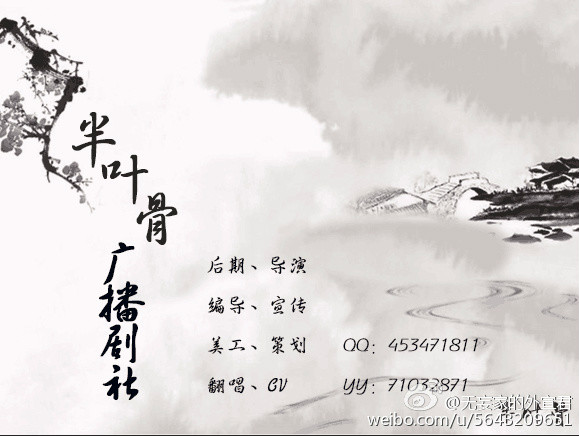 半叶骨
广播剧社
后期、导演
编导、宣传
美工、策划 QQ: 453471811
翻唱、CV YY: 71032871
半叶骨
weibo.com/u/5643209651